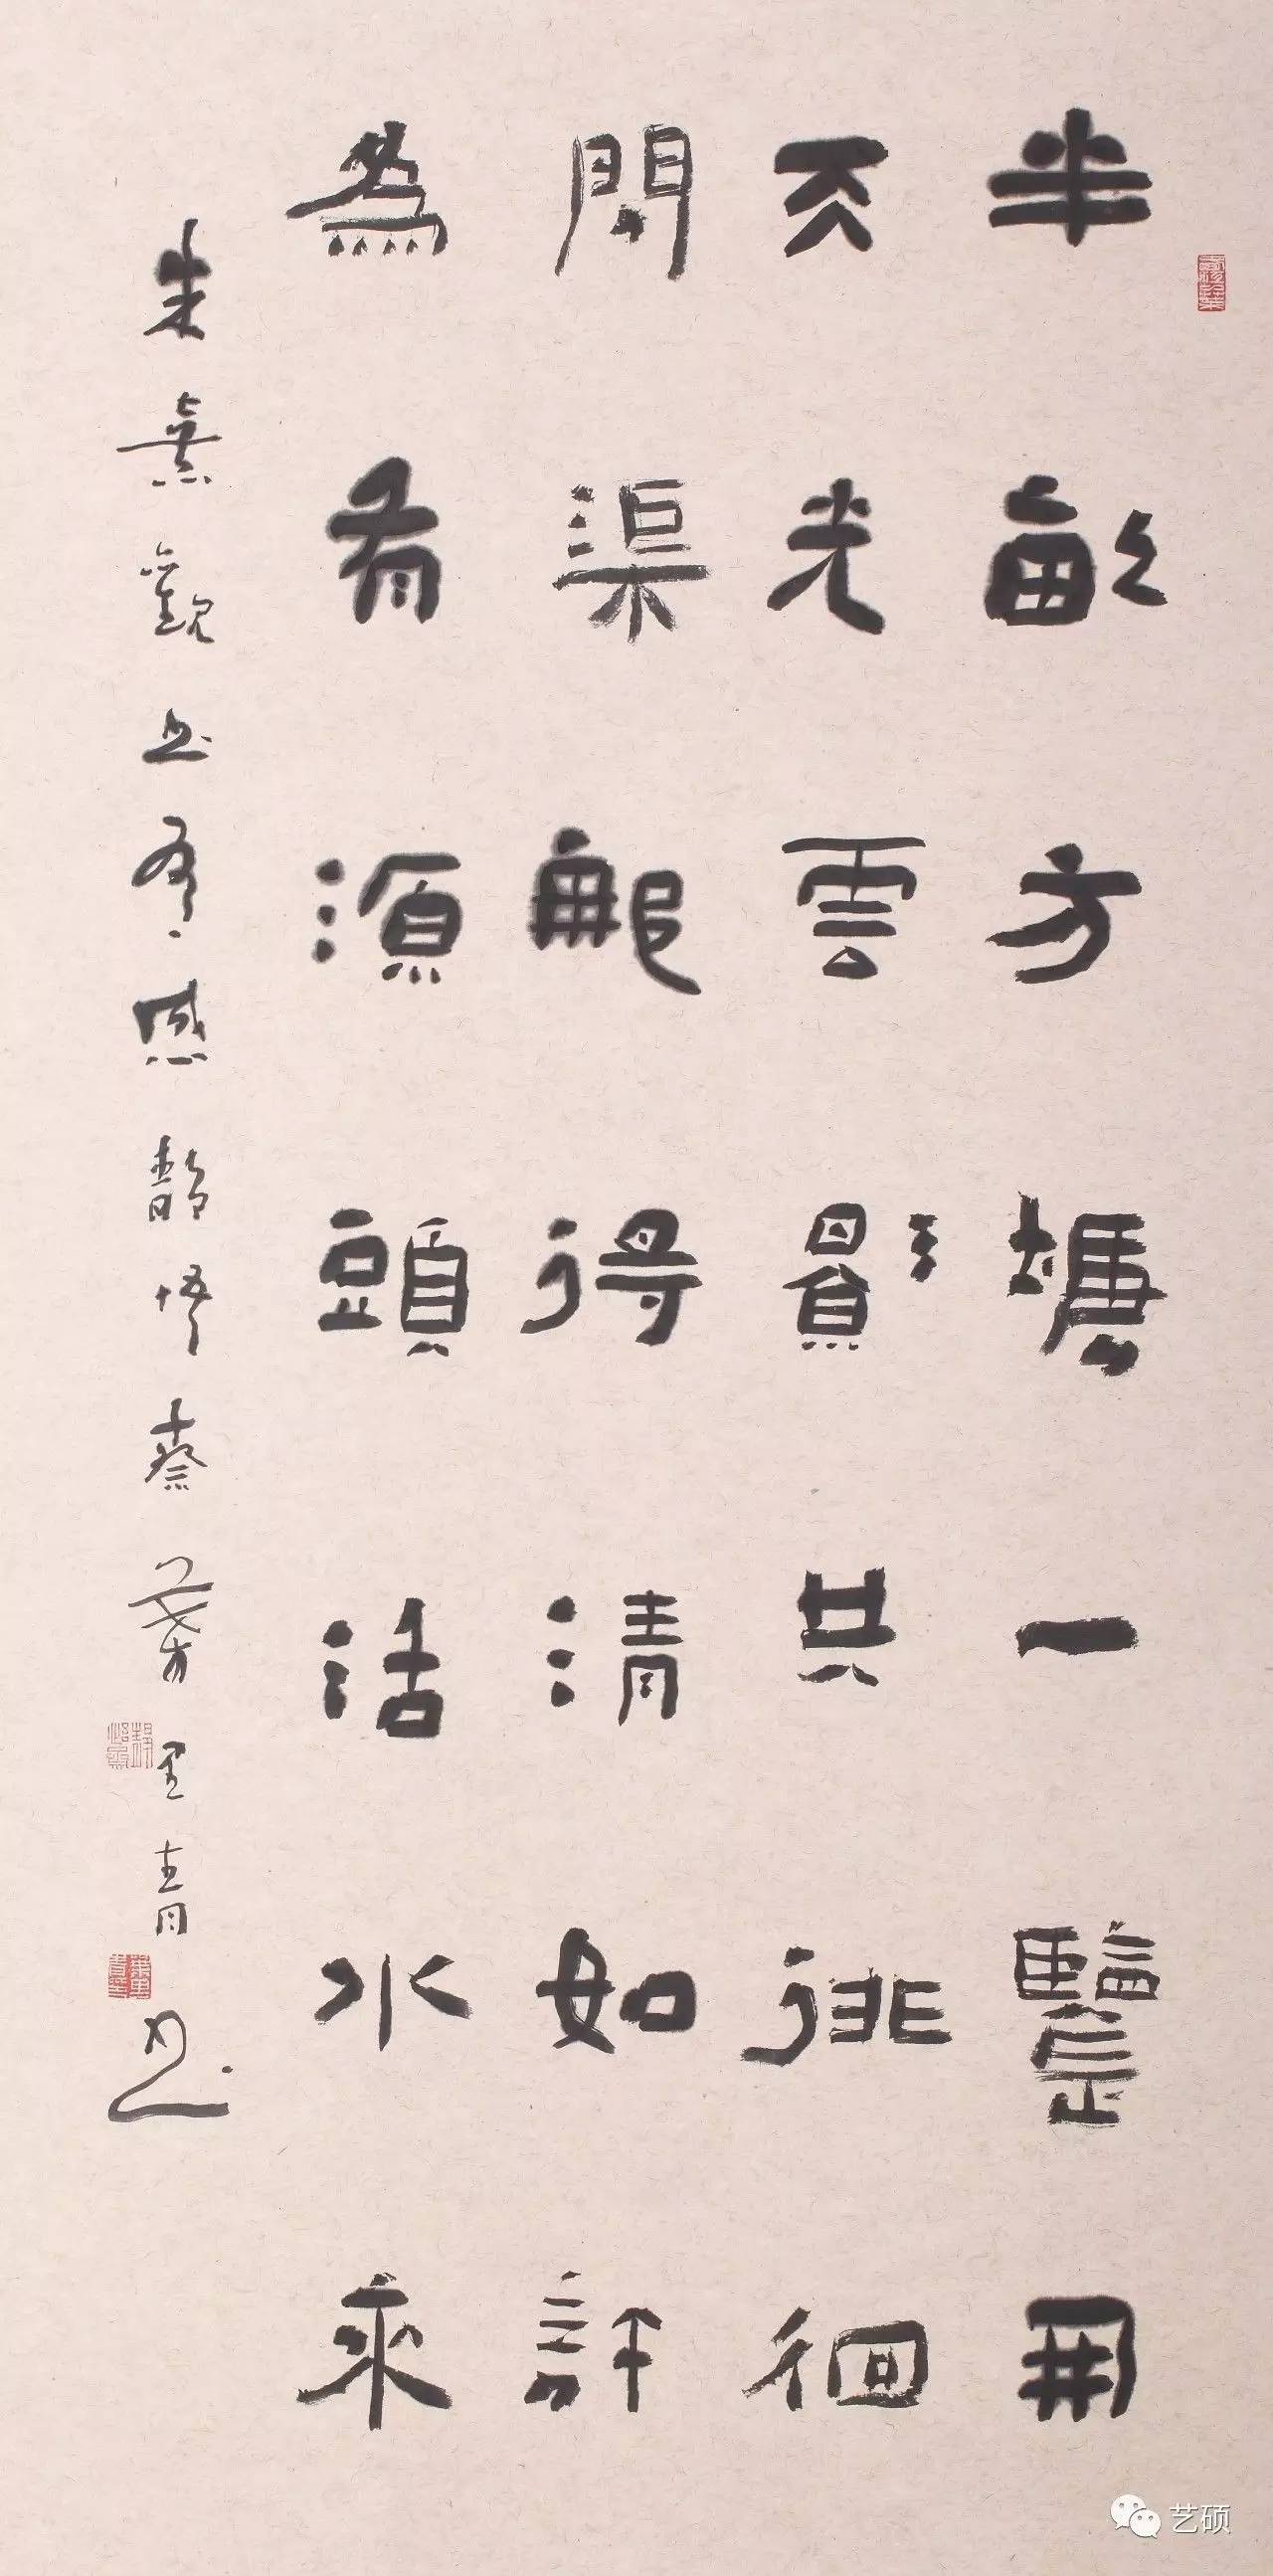 半畝方塘一鑒開
天光雲影共徘徊
問渠那得清如許
為有源頭活水來
朱熹觀书有感 里青书
艺硕